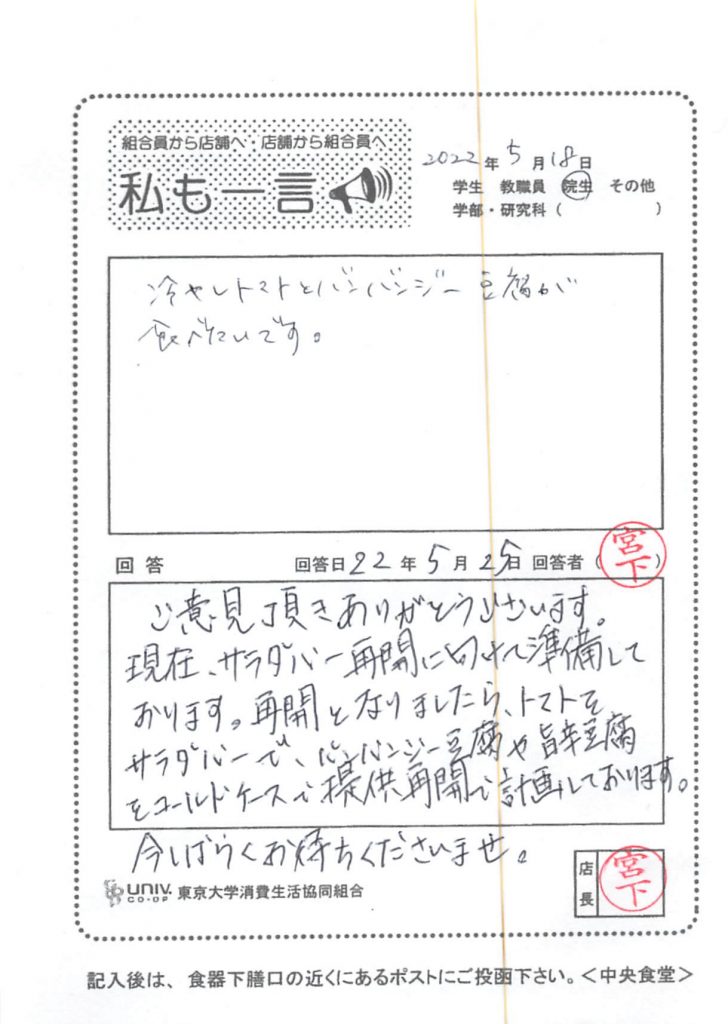 組合員から店舗へ 店舗から組合員へ
私も一言
2022年5月18日
学生 教職員 院生 その他
学部・研究科( )
冷やしトマトとバンバンジー豆腐が
食べたいです。
回答 回答日22年5月25日 回答者(宮下)
ご意見頂きありがとうございます。
現在、サラダバー再開に向けて準備して
おります。再開となりましたら、トマトを
サラダバーで、バンバンジー豆腐や旨辛豆腐
をコールドケースで提供再開で計画しております。
今しばらくお待ちくださいませ。
店長 宮下
UNIV. CO-OP 東京大学消費生活協同組合
記入後は、食器下膳口の近くにあるポストにご投函下さい。<中央食堂>